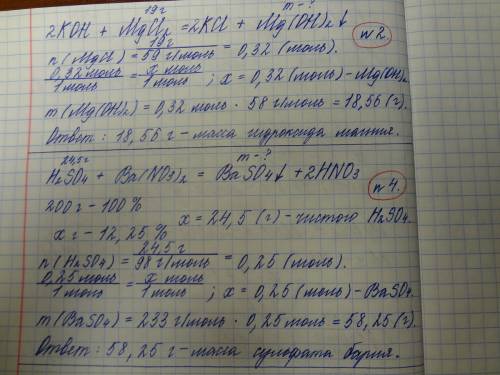 19 г m - ?
2KOH + MgCl₂ = 2KCl + Mg(OH)₂↓
N 2.
n (MgCl) = 19 г / 59 г/моль = 0,32 (моль).
0,32 моль / 1 моль = x моль / 1 моль ; x = 0,32 (моль) - Mg(OH)₂.
m (Mg(OH)₂) = 0,32 моль · 58 г/моль = 18,56 (г).
Ответ : 18,56 г - масса гидроксида магния.
24,5 г m - ?
H₂SO₄ + Ba(NO₃)₂ = BaSO₄↓ + 2HNO₃
N 4.
200 г - 100 %
x г - 12,25 % x = 24,5 (г) - чистого H₂SO₄.
n (H₂SO₄) = 24,5 г / 98 г/моль = 0,25 (моль).
0,25 моль / 1 моль = x моль / 1 моль ; x = 0,25 (моль) - BaSO₄.
m (BaSO₄) = 233 г/моль · 0,25 моль = 58,25 (г).
Ответ : 58,25 г - масса сульфата бария.